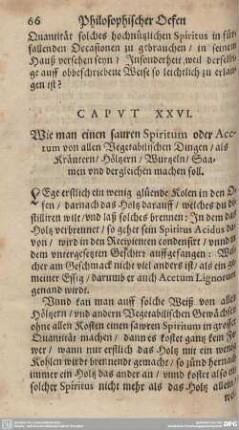 66 Philosophischer Oefen
Quantität solches hochnützlichen Spiritus in für-
fallenden Occasionen zu gebrauchen / in seinem
Hauß versehen seyn? Insonderheit weil derselbi-
ge auff obbeschriebene Weise so leichtlich zu erlan-
gen ist?
CAPUT XXVI.
Wie man einen sauren Spiritum oder Ace-
tum von allen Vegetabilischen Dingen / als
Kräutern / Höltzern / Wurtzeln / Saa-
men und dergleichen machen soll.
LEge erstlich ein wenig glüende Kolen in den O-
fen / darnach das Holtz darauff / welches du di-
stilliren wilt / und laß solches brennen: In dem das
Holtz verbrennet / so gehet sein Spiritus Acidus da-
von / wird in den Recipienten condensirt / unnd in
dem untergesetzten Geschirr auffgefangen: Wel-
cher am Geschmack nicht viel anders ist / als ein ge-
meiner Essig / darumb er auch Acetum Lignorum
genand wirdt.
Unnd kan man auff solche Weiß von allen
Höltzern / und andern Vegetabilischen Gewächsen
ohne allen Kosten einen sawren Spiritum in grosser
Quantität machen / dann es kostet gantz kein Fe-
wer / wann nur erstlich das Holtz mit ein wenig
Kohlen wirdt brennendt gemacht / so zündt hernach
immer ein Holtz das ander an / unnd kostet also ein
solcher Spiritus nicht mehr als das Holtz allein /